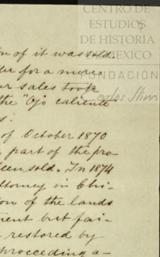 CENTRO DE
ESTUDIOS
DE HISTORIA
DE MEXICO
FUNDACIÓN
Carlos Slim
on of it was sold.
for a more
sales took
the "Ojo caliente"
of October 1870
part of the pro
been sold. In 1874
torney in Chi
on of the lands
ment but fai
restored by
proceeding a